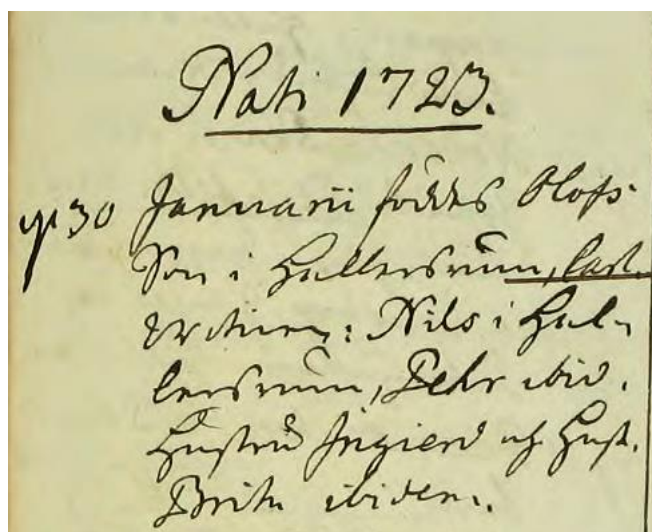 Nati 1723.
30 Januarii föddes Olofs
Son i Hallersrum, 
Wittnen: Nils i Hal-
lersrum, Pehr ibid.
Hustru Ingierd och Hust.
Brita ibidem.